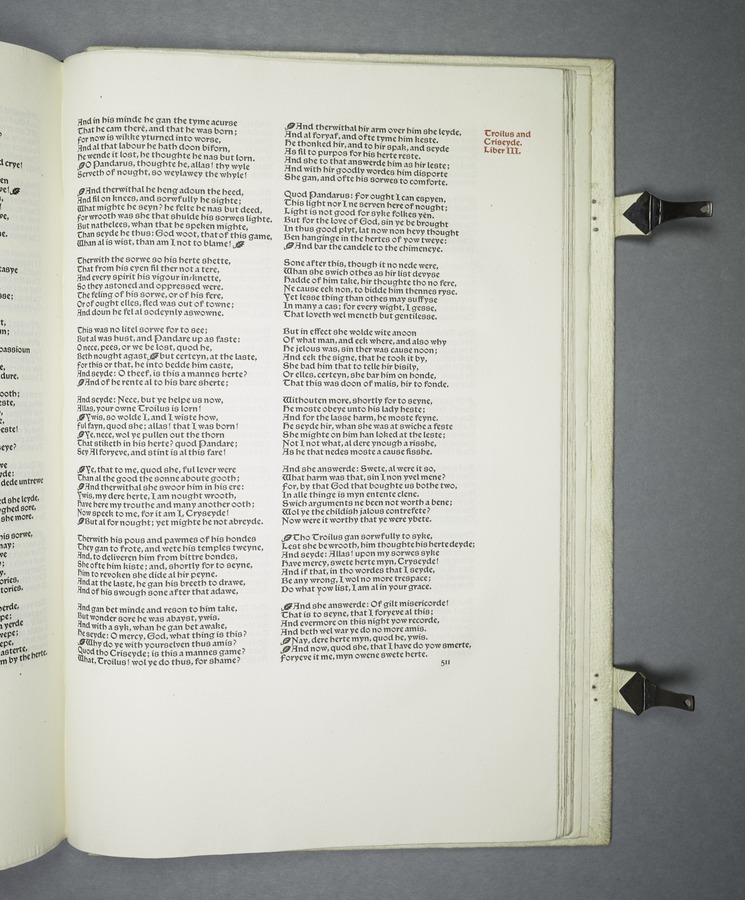 d crye!
en
ve!
ve,
ne.
tasye
use;
t,
m;
passioun
e,
dure.
ooth;
este,
y,
este!
eye?
ve
yde:
dede untrewe
ed she leyde,
ghed sore,
she more.
his sorwe,
nay;
ve
y;
ories,
tories.
herde,
pe;
a yerde
wepe;
epe,
asterte,
m by the herte.
And in his minde he gan the tyme acurse
That he cam there, and that he was born;
For now is wikke yturned into worse,
And al that labour he hath doon biforn,
He wende it lost, he thoughte he nas but lorn.
O Pandarus, thoughte he, allas! thy wyle
Serveth of nought, so weylawey the whyle!
And therwithal he heng adoun the heed,
And fil on knees, and sorwfully he sighte;
What mighte he seyn? he felte he nas but deed,
For wrooth was she that shulde his sorwes lighte.
But nathelees, whan that he spoken mighte,
Than seyde he thus: God woot, that of this game,
Whan al is wist, than am I not to blame!
Therwith the sorwe so his herte shette,
That from his eyen fil ther not a tere,
And every spirit his vigour in/knette,
So they astoned and oppressed were.
The feling of his sorwe, or of his fere,
Or of ought elles, fled was out of towne;
And doun he fel al sodeynly aswowne.
This was no litel sorwe for to see;
But al was hust, and Pandare up as faste:
O nece, pees, or we be lost, quod he,
Beth nought agast, but certeyn, at the laste,
For this or that, he into bedde him caste,
And seyde: O theef, is this a mannes herte?
And of he rente al to his bare sherte;
And seyde: Nece, but ye helpe us now,
Allas, your owne Troilus is lorn!
Ywis, so wolde I, and I wiste how,
Ful fayn, quod she; allas! that I was born!
Ye, nece, wol ye pullen out the thorn
That stiketh in his herte? quod Pandare;
Sey Al foryeve, and stint is al this fare!
Ye, that to me, quod she, ful lever were
Than al the good the sonne aboute gooth;
And therwithal she swoor him in his ere:
Ywis, my dere herte, I am nought wrooth,
Have here my trouthe and many another ooth;
Now speek to me, for it am I, Cryseyde!
But al for nought; yet mighte he not abreyde.
Therwith his pous and pawmes of his hondes
They gan to frote, and wete his temples tweyne,
And, to deliveren him from bittre bondes,
She ofte him kiste; and, shortly for to seyne,
Him to revoken she dide al hir peyne.
And at the laste, he gan his breeth to drawe,
And of his swough sone after that adawe,
And gan bet minde and reson to him take,
But wonder sore he was abayst, ywis.
And with a syk, whan he gan bet awake,
He seyde: O mercy, God, what thing is this?
Why do ye with yourselven thus amis?
Quod tho Criseyde; is this a mannes game?
What, Troilus! wol ye do thus, for shame?
And therwithal hir arm over him she leyde,
And al foryaf, and ofte tyme him keste.
He thonked hir, and to hir spak, and seyde
As fil to purpos for his herte reste.
And she to that answerde him as hir leste;
And with hir goodly wordes him disporte
She gan, and ofte his sorwes to comforte.
Quod Pandarus: For ought I can espyen,
This light nor I ne serven here of nought;
Light is not good for syke folkes yën.
But for the love of God, sin ye be brought
In thus good plyt, lat now non hevy thought
Ben hanginge in the hertes of yow tweye:
And bar the candele to the chimeneye.
Sone after this, though it no nede were,
Whan she swich othes as hir list devyse
Hadde of him take, hir thoughte tho no fere,
Ne cause eek non, to bidde him thennes ryse.
Yet lesse thing than othes may suffyse
In many a cas; for every wight, I gesse,
That loveth wel meneth but gentilesse.
But in effect she wolde wite anoon
Of what man, and eek where, and also why
He jelous was, sin ther was cause noon;
And eek the signe, that he took it by,
She bad him that to telle hir bisily,
Or elles, certeyn, she bar him on honde,
That this was doon of malis, hir to fonde.
Withouten more, shortly for to seyne,
He moste obeye unto his lady heste;
And for the lasse harm, he moste feyne.
He seyde hir, whan she was at swiche a feste
She mighte on him han loked at the leste;
Not I not what, al dere ynough a risshe,
As he that nedes moste a cause fisshe.
And she answerde: Swete, al were it so,
What harm was that, sin I non yvel mene?
For, by that God that boughte us bothe two,
In alle thinge is myn entente clene.
Swich arguments ne been not worth a bene;
Wol ye the childish jalous contrefete?
Now were it worthy that ye were ybete.
Tho Troilus gan sorwfully to syke,
Lest she be wrooth, him thoughte his herte deyde;
And seyde: Allas! upon my sorwes syke
Have mercy, swete herte myn, Cryseyde!
And if that, in tho wordes that I seyde,
Be any wrong, I wol no more trespace;
Do what yow list, I am al in your grace.
And she answerde: Of gilt misericorde!
That is to seyne, that I foryeve al this;
And evermore on this night yow recorde,
And beth wel war ye do no more amis.
Nay, dere herte myn, quod he, ywis.
And now, quod she, that I have do yow smerte,
Foryeve it me, myn owene swete herte.
511
Troilus and
Criseyde.
Liber III.